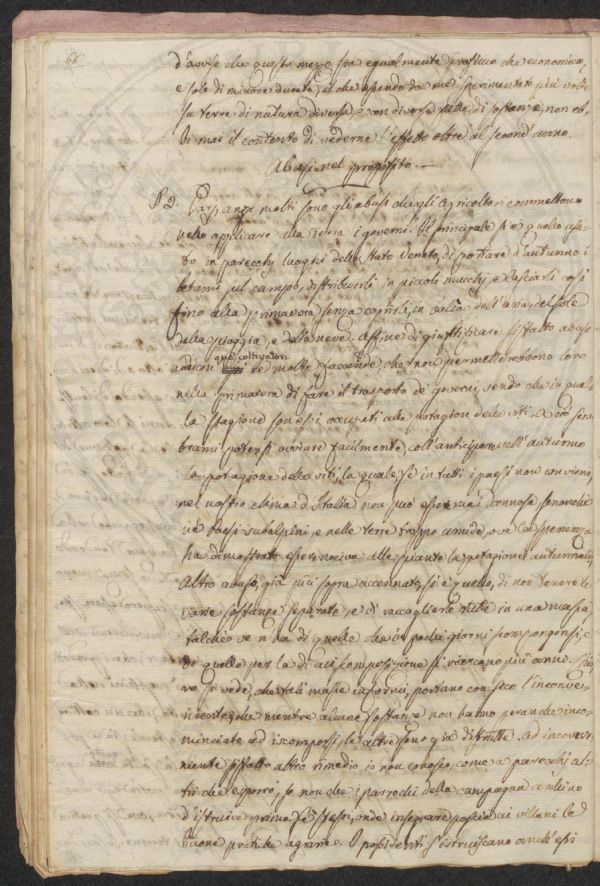 66
d'avviso che questo mezzo sia egualmente che economico,
e solo di minore durata, il che essendo da me sperimentato più volte
su terre di natura diversa, e con diverse fatte di sostanze, non eb-
bi mai il contento di vederne l'effetto oltre al second'anno.
Abusi nel proposito
§ 2. anzi molti sono gli abusi che gli agricoltori commettono
nello applicare alla terra i governi. Il principale si è quello usa-
to in parecchi luoghi dello Stato Veneto, di portare d'autunno i
letami sul campo, distribuirli in piccoli mucchj, e lasciarli così
fino alla primavera senza coprirli, in balìa dell'aria, del sole
della pioggia, e della neve. Affine di giustificare sifatto abuso
que' coltivatori
adducon le molte faccende, che non permetterebbono loro
nella primavera di fare il trasporto de' governi, sendo che in quel-
la stagione son essi occupati alla potagion delle viti. A ciò sem-
brami potersi ovviare facilmente, coll'anticipare nell'autunno
la potagione delle viti, la quale se in tutti i paesi non conviene,
nel nostro clima d'Italia non può esser mai dannosa, senonchè
ne' Paesi subalpini, e nelle terre troppo umide, ove l'esperienza
ha dimostrato essere nociva alle piante la potagione autunnale.
Altro abuso, già più sopra accennato, si è quello, di non tenere le
varie sostanze separate, e di raccoglierle tutte in una massa
talchè ve n'ha di quelle che in pochi giorni scompongonsi, e
di quelle per la di cui scomposizione si ricercano più anni.
ro si vede, che tali masse informi, portano con seco l'inconve-
niente, che mentre alcune sostanze non hanno peranche inco-
minciato ad iscomporsi, le altre sono già distrutte. Ad inconve-
niente siffatto altro rimedio io non conosco, come a parecchj al-
tri che esporrò, se non che i parrochi della campagna
d'istruire prima se stessi, onde insegnare poscia ai villani le
buone pratiche agrarie. I possidenti s'istruiscano anch'essi